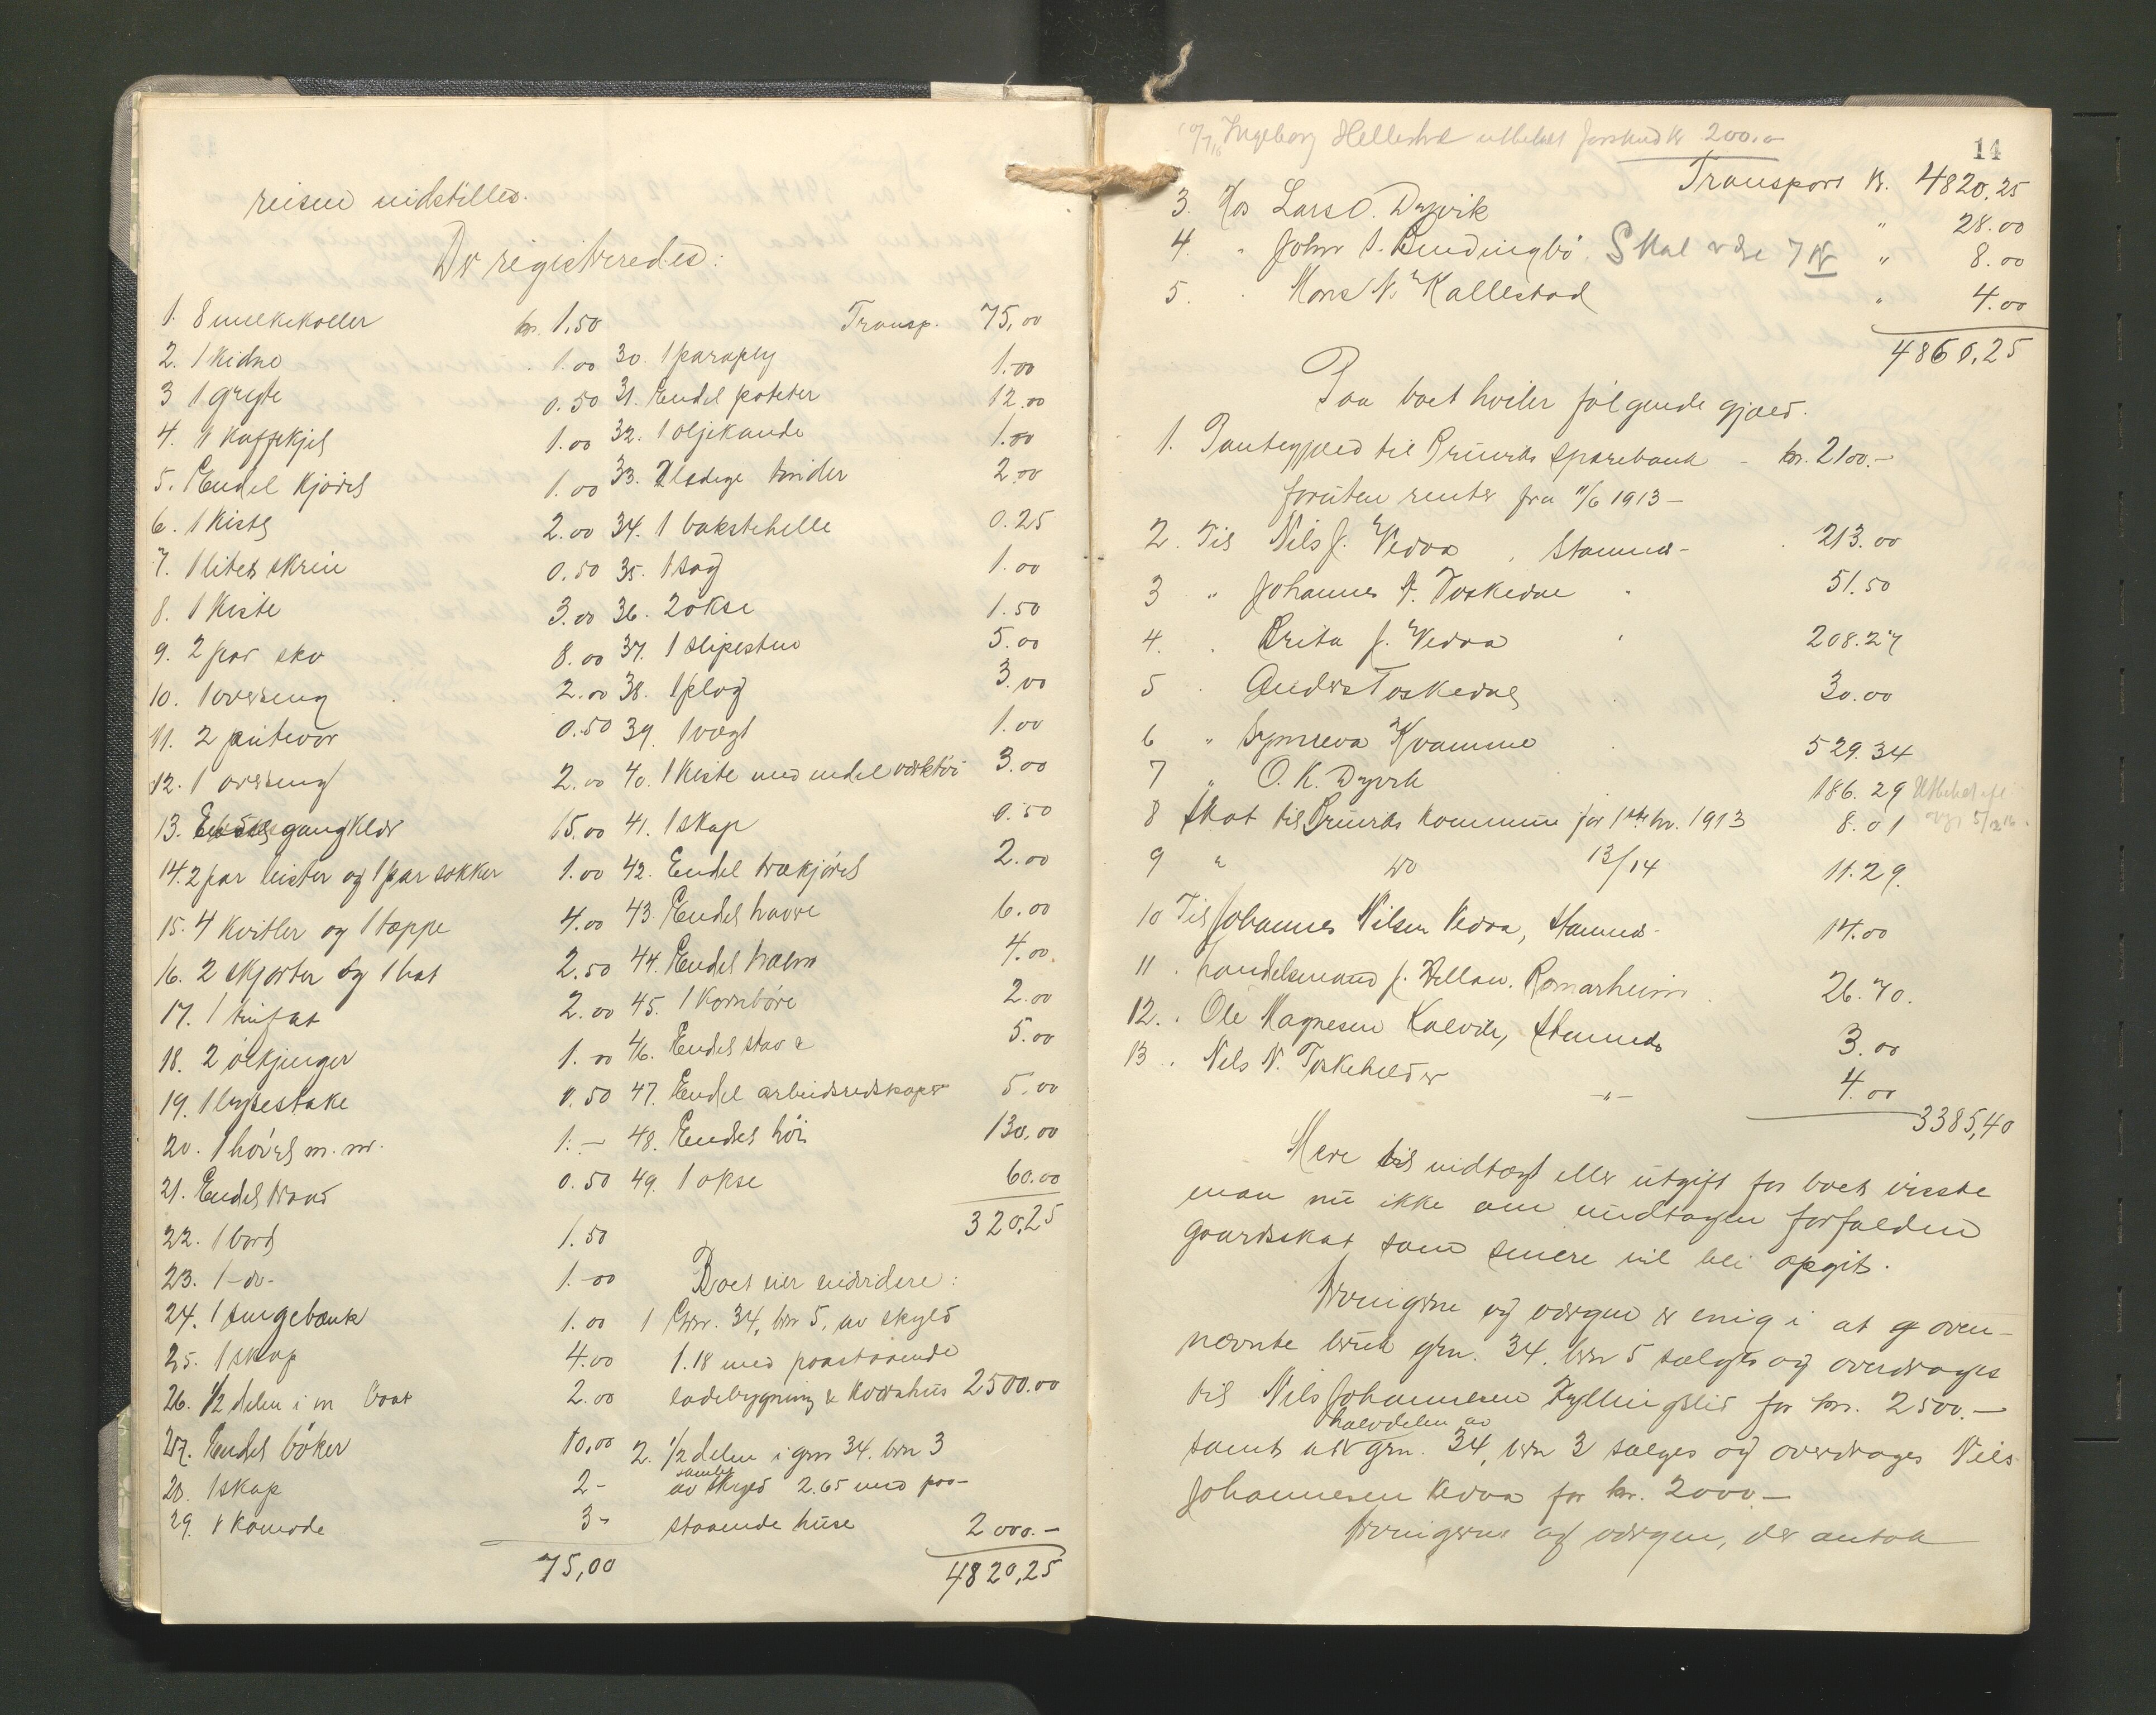 reisen indstilles.
Der registreredes:
1. 8 melkekoller kr. 1,50
2. 1 kidne 1.00
3 1 gryte 0.50
4. 1 kaffekjel 1.00
5. Endel kjørel 1.00
6. 1 kiste 2.00
7. 1 litet skrin 0.50
8. 1 kiste 3.00
9. 2 par sko 8.00
10. 1 overseng 2.00
11. 2 putevor 0.50
12. 1 overseng 2.00
13. Endel gangklær 15.00
14. 2 par leister og 1 par sokker 1.00
15. 4 kvitler og 1 tæppe 4.00
16. 2 skjorter og 1 hat 2.50
17. 1 tinfat 2.00
18. 2 ølkjenger 1.00
19. 1 lysestake 0.50
20. 1 høvel m. m. 1.-
21. Endel traad 0.50
22. 1 bord 1.50
23. 1 -do- 1.00
24. 1 sengebænk 1.00
25. 1 skap 4.00
26. 1/2 delen i en baat 2.00
27. Endel bøker 10,00
28. 1 skap 2-
29. 1 komode 3-
75,00
Transp. 75,00
30. 1 paraply 1.00
31. Endel poteter 12.00
32. 1 oljekande 1.00
33. Ulodige tønder 2.00
34. 1 bakstehelle 0.25
35. 1 sag 1.00
36. 2 økse 1.50
37. 1 slipesten 5.00
38. 1 plog 3.00
39. 1 vægt 1.00
40. 1 kiste med endel værktøi 3.00
41. 1 skap 0.50
42. Endel trækjørel 2.00
43. Endel havre 6.00
44. Endel halm 4.00
45. 1 kornbøre 2.00
46. Endel stav 5.00
47. Endel arbeidsredskaper 5.00
48. Endel høi 130,00
49. 1 okse 60.00
320,25
Boet eier endvidere:
1 Gnr. 34, bnr 5, av skyld
1.18 med paastaaende
ladebygning & kværnhus 2500.00
2. 1/2 delen i gnr 34. bnr 3
samlet
av skyld 2.65 med paa-
staaende huse 2000.-
4820,25
Ingeborg Hellestvet utbetalt forskud kr 200.00
14
Transport kr. 4820,25
3. Hos Lars O. Dyrvik " 28.00
4. " John S. Rundingbø. Skal være 7 kr " 8.00
5. " Mons N. Kallestad " 4.00
4860,25
Paa boet hviler følgende gjæld.
1. Pantegjæld til Bruviks sparebank - kr. 2100.-
foruten renter fra 11/6 1913-
2. Til Nils J. Vedaa, Stamnes - 213.00
3 " Johannes A. Toskedal " 51.50
4. " Brita J. Vedaa " 208.27
5 " Anders Toskedal 30.00
6 " Synneva Kvamme 529.34
7 " O. K. Dyvik 186.29
8 Skat til Bruviks kommune for 1ste hr. 1913 8.01
9 " do 13/14 11.29.
10 Til Johannes Nilsen Vedaa, Stamnes - 14.00
11 " handelsmand J. Villan. Romarheim 26.70.
12. " Ole Magnesen Kalvik, Stamnes 3.00
13. " Nils N. Toskehelder -"- 4.00
3385,40
Mere til indtægt eller utgift for boet visste
man nu ikke om undtagen forfalden
gaardsskat som senere vil bli opgit.
Arvingerne og værgen er enig i at oven-
nævnte bruk gnr. 34, bnr 5 sælges og overdrages
til Nils Johannesen Hyllingslid for kr. 2500.-
halvdelen av
samt at gnr. 34, bnr 3 sælges og overdrages Nils
Johannesen Vedaa for kr. 2000.-
Arvingerne og værgen, der antok